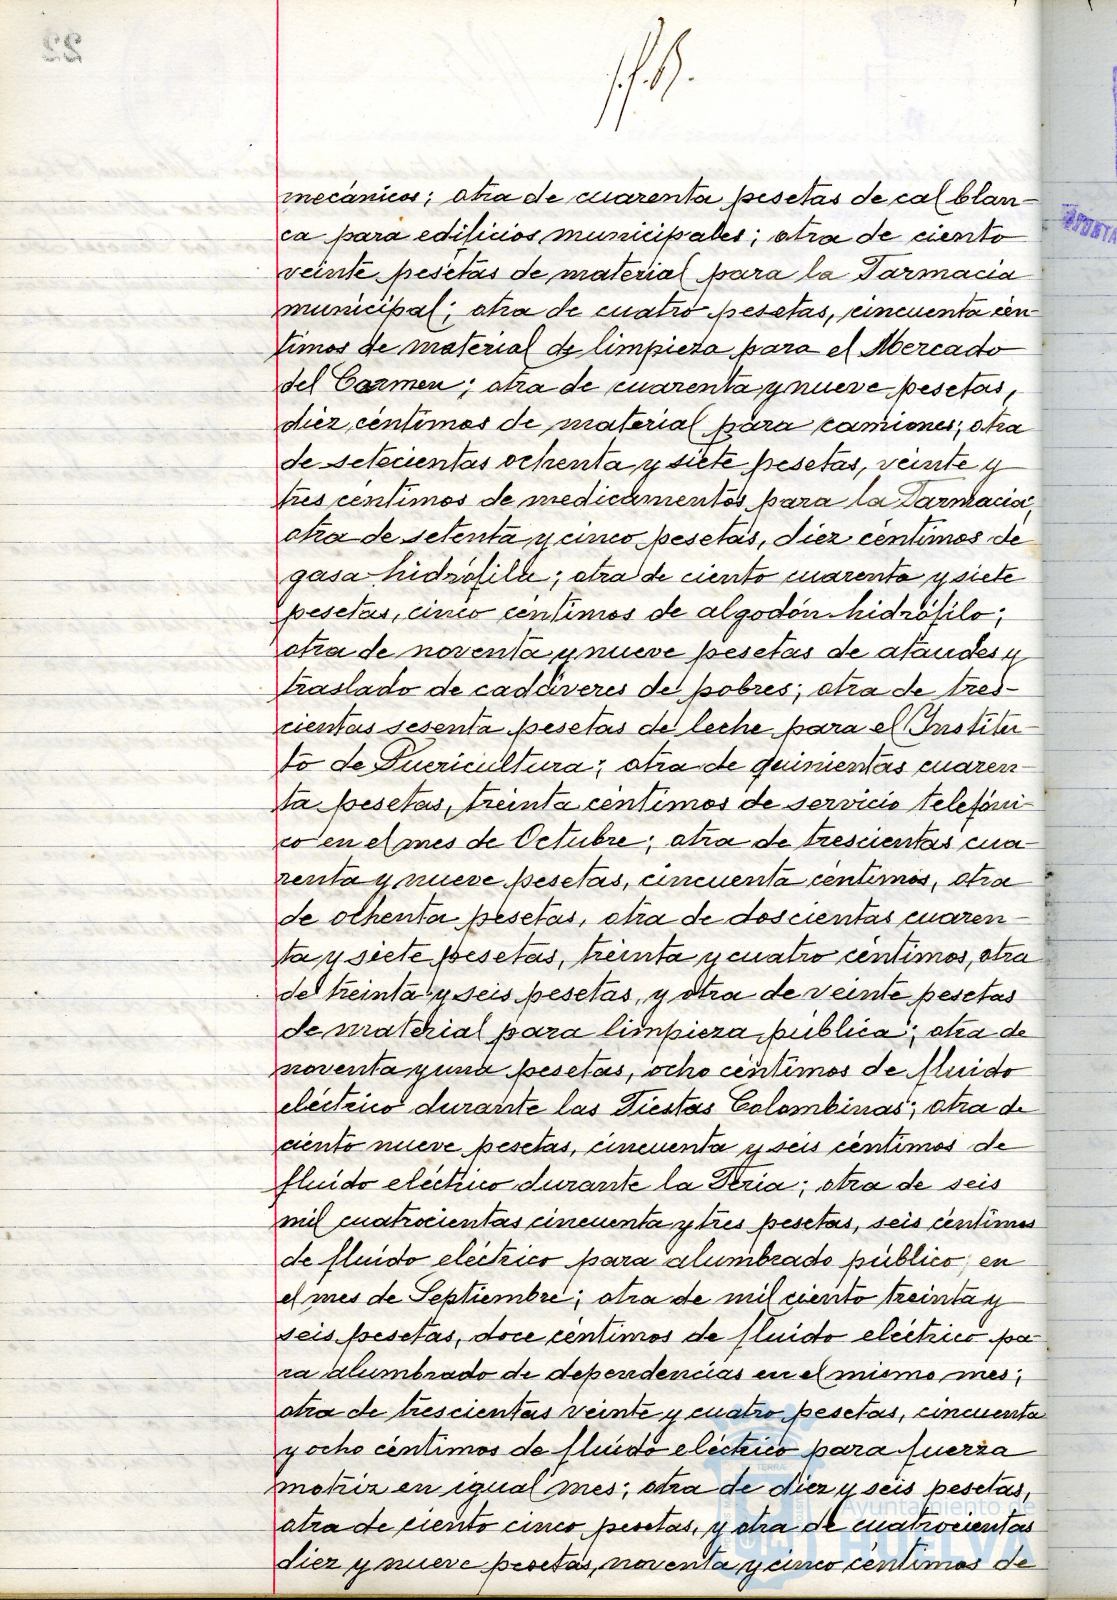 mecánicos; otra de cuarenta pesetas de cal blan-
ca para edificios municipales; otra de ciento
veinte pesetas de material para la Farmacia
municipal; otra de cuatro pesetas, cincuenta cén-
timos de material de limpieza para el Mercado
del Carmen; otra de cuarenta y nueve pesetas,
diez céntimos de material para camiones; otra
de setecientas ochenta y siete pesetas, veinte y
tres céntimos de medicamentos para la Farmacia;
otra de setenta y cinco pesetas, diez céntimos de
gasa hidrófila; otra de ciento cuarenta y siete
pesetas, cinco céntimos de algodón hidrófilo;
otra de noventa y nueve pesetas de ataudes y
traslado de cadáveres de pobres; otra de tres-
cientas sesenta pesetas de leche para el Institu-
to de Puericultura; otra de quinientas cuaren-
ta pesetas, treinta céntimos de servicio telefóni-
co en el mes de Octubre; otra de trescientas cua-
renta y nueve pesetas, cincuenta céntimos, otra
de ochenta pesetas, otra de doscientas cuaren-
ta y siete pesetas, treinta y cuatro céntimos, otra
de treinta y seis pesetas, y otra de veinte pesetas
de material para limpieza pública; otra de
noventa y una pesetas, ocho céntimos de fluido
eléctrico durante las Fiestas Colombinas; otra de
ciento nueve pesetas, cincuenta y seis céntimos de
fluído eléctrico durante la Feria; otra de seis
mil cuatrocientas cincuenta y tres pesetas, seis céntimos
de fluído eléctrico para alumbrado público, en
el mes de Septiembre; otra de mil ciento treinta y
seis pesetas, doce céntimos de fluido eléctrico pa-
ra alumbrado de dependencias en el mismo mes;
otra de trescientas veinte y cuatro pesetas, cincuenta
y ocho céntimos de fluído eléctrico para fuerza
motriz en igual mes; otra de diez y seis pesetas,
otra de ciento cinco pesetas, y otra de cuatrocientas
diez y nueve pesetas, noventa y cinco céntimos de
Ayuntamiento de
HUELVA